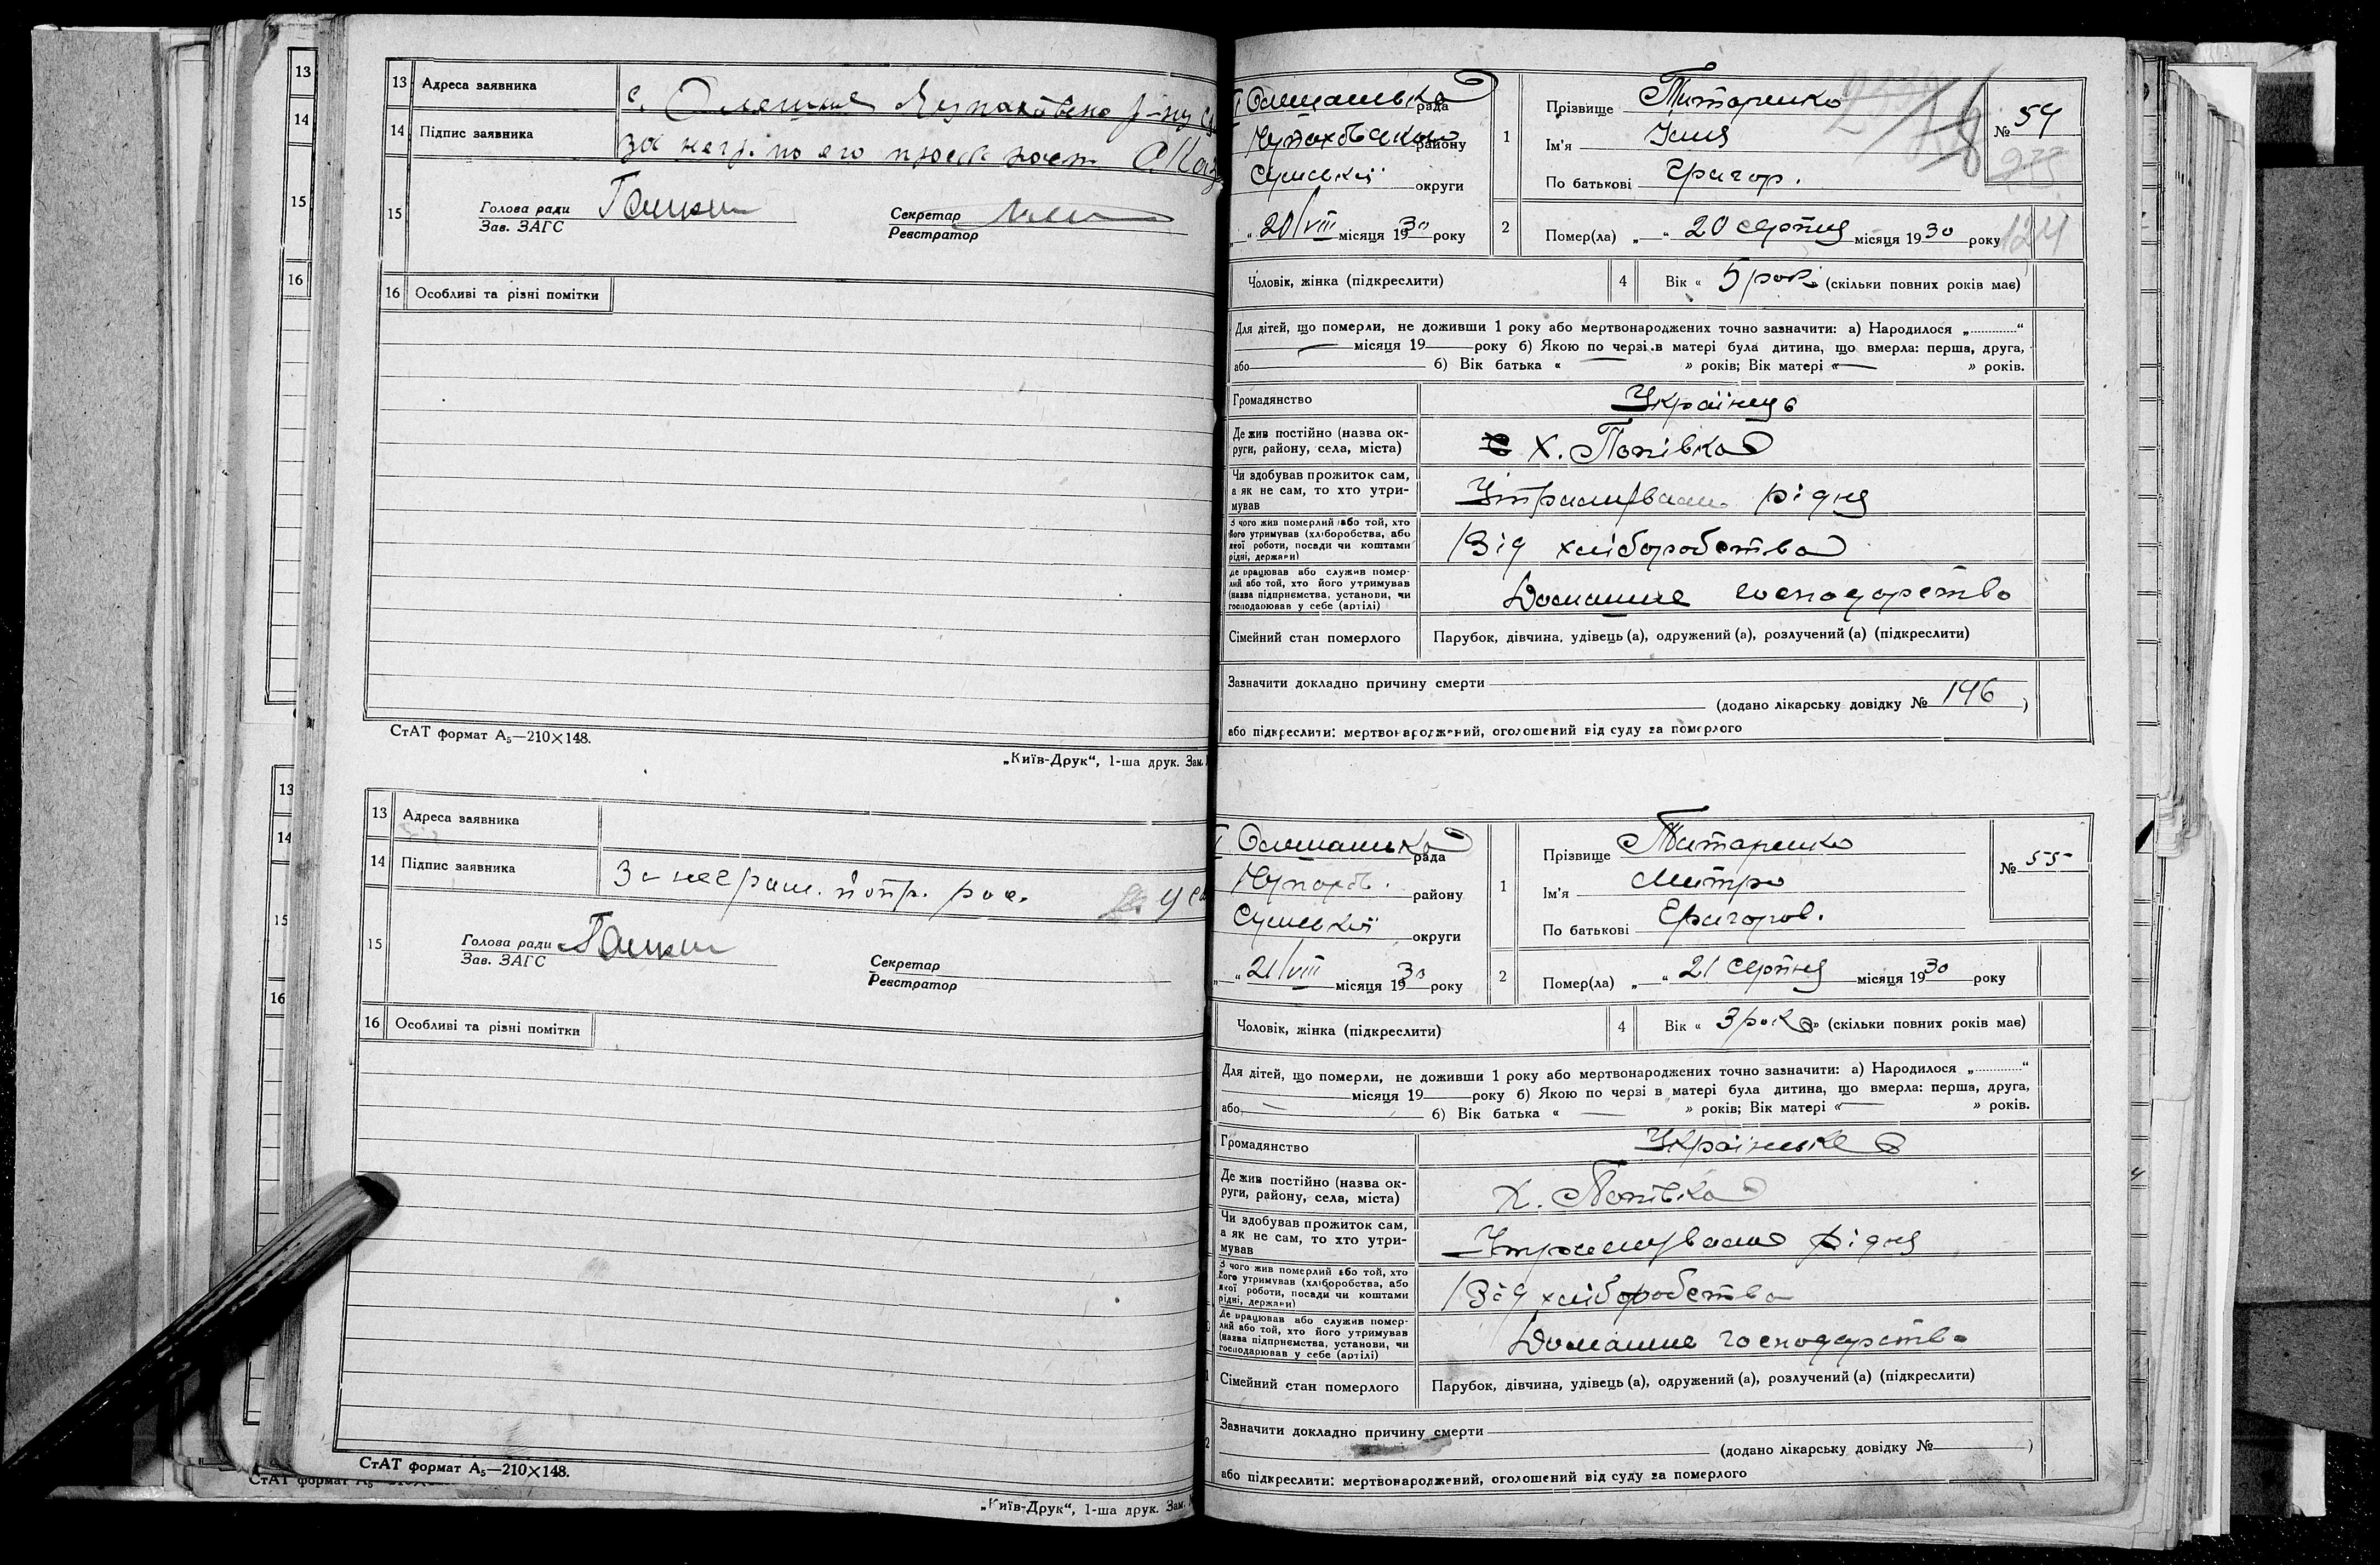 13
14
15
16
13
14
15
16
13 Адреса заявника с.
14 Підпис заявника за негр. по его
15 Голова ради
Зав. ЗАГС
Секретар
Реєстратор
16 Особливі та різні помітки
СтАТ формат А₅—210×148.
„Київ-Друк“, 1-ша друк. Зам.
13 Адреса заявника
14 Підпис заявника За
15 Голова ради
Зав. ЗАГС
Секретар
Реєстратор
16 Особливі та різні помітки
СтАТ формат А₅—210×148.
„Київ-Друк“, 1-ша друк. Зам.
рада
району
Сумської округи
„ “ 20/VIII місяця 1930 року
1 Прізвище Титаренко
Ім'я Ілля
По батькові Григор.
№ 54
124
2 Помер(ла) „ “ 20 серпня місяця 1930 року
Чоловік, жінка (підкреслити)
4 Вік « 5 рок. (скільки повних років має)
Для дітей, що померли, не доживши 1 року або мертвонароджених точно зазначити: а) Народилося „ “
місяця 19 року б) Якою по черзі в матері була дитина, що вмерла: перша, друга,
або б) Вік батька « » років; Вік матері « » років.
Громадянство Українець
Де жив постійно (назва ок-
руги, району, села, міста) х. Попівка
Чи здобував прожиток сам,
а як не сам, то хто утри-
мував Утримували рідня
З чого жив померлий або той, хто
його утримував (хліборобства, або
якої роботи, посади чи коштами
рідні, держави) Від хліборобства
Де працював або служив помер-
лий або той, хто його утримував
(назва підприємства, установи, чи
господарював у себе (артілі) Домашнє господарство
Сімейний стан померлого Парубок, дівчина, удівець (а), одружений (а), розлучений (а) (підкреслити)
Зазначити докладно причину смерти
(додано лікарську довідку № 146 )
або підкреслити: мертвонароджений, оголошений від суду за померлого
рада
району
Сумської округи
„ “ 21/VIII місяця 1930 року
1 Прізвище Титаренко
Ім'я Митро
По батькові Григоров.
№ 55
2 Помер(ла) „ “ 21 серпня місяця 1930 року
Чоловік, жінка (підкреслити)
4 Вік « 3 рок » (скільки повних років має)
Для дітей, що померли, не доживши 1 року або мертвонароджених точно зазначити: а) Народилося „ “
місяця 19 року б) Якою по черзі в матері була дитина, що вмерла: перша, друга,
або б) Вік батька « » років; Вік матері « » років.
Громадянство Українське
Де жив постійно (назва ок-
руги, району, села, міста) х. Попівка
Чи здобував прожиток сам,
а як не сам, то хто утри-
мував Утримувала рідня
З чого жив померлий або той, хто
його утримував (хліборобства, або
якої роботи, посади чи коштами
рідні, держави) Від хліборобства
Де працював або служив помер-
лий або той, хто його утримував
(назва підприємства, установи, чи
господарював у себе (артілі) Домашнє господарство
Сімейний стан померлого Парубок, дівчина, удівець (а), одружений (а), розлучений (а) (підкреслити)
Зазначити докладно причину смерти
(додано лікарську довідку № )
або підкреслити: мертвонароджений, оголошений від суду за померлого